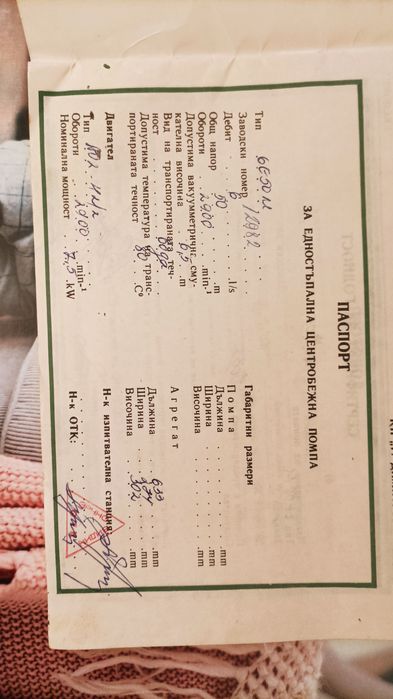 ПАСПОРТ
ЗА ЕДНОСТЪПАЛНА ЦЕНТРОБЕЖНА ПОМПА
Тип 6Е50М
Заводски номер 12982
Дебит . . 6 . . . . l/s
Общ напор 50 . . . m
Обороти . . 2900 . . min.-¹
Допустима вакуумметрична сму-
кателна височина 6,5 . m
Вид на транспортираната теч-
ност . . . вода . . .
Допустима температура на транс-
портираната течност 80 . C°
Двигател
Тип
Обороти . . 2900 . min-¹
Номинална мощност 7,5 . kW
Габаритни размери
Помпа
Дължина . . . . . . . mm
Ширина . . . . . . . mm
Височина . . . . . . . mm
Агрегат
Дължина 633 . . . mm
Ширина . . . mm
Височина . . 302 . . . mm
Н-к изпитвателна станция:
Н-к ОТК: